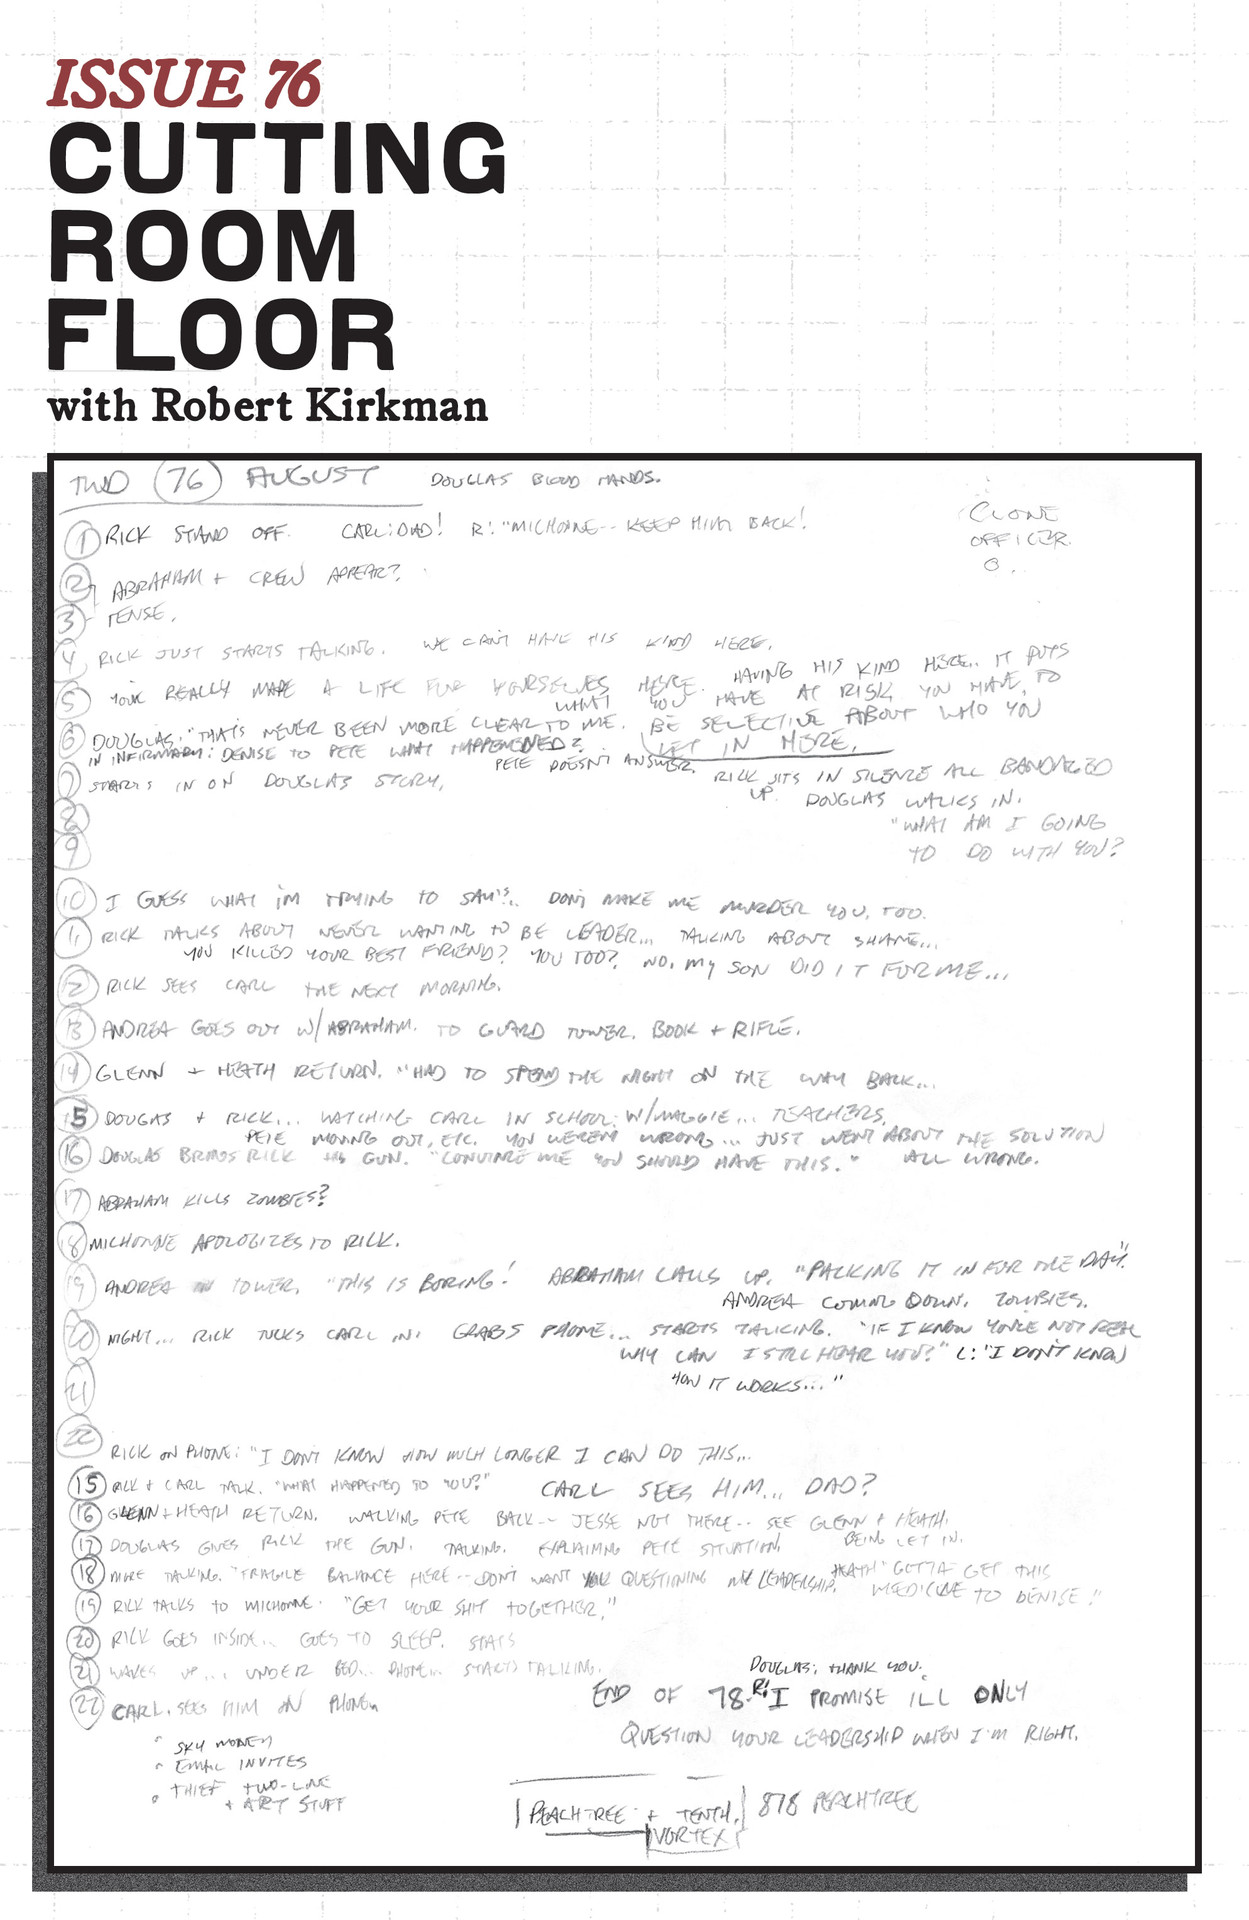 ISSUE 76
CUTTING
ROOM
FLOOR
with Robert Kirkman
TWD 76 AUGUST DOUGLAS BLOOD HANDS.
CLONE
OFFICER
1 RICK STAND OFF. CARL: DAD! R: "MICHONNE-- KEEP HIM BACK!
2 ABRAHAM + CREW APPEAR?
3 TENSE.
4 RICK JUST STARTS TALKING. WE CAN'T HAVE HIS KIND HERE.
5 YOU'VE REALLY MADE A LIFE FOR YOURSELVES HERE. HAVING HIS KIND HERE.. IT PUTS
WHAT YOU HAVE AT RISK, YOU HAVE TO
6 DOUGLAS: "THAT'S NEVER BEEN MORE CLEAR TO ME. BE SELECTIVE ABOUT WHO YOU
LET IN HERE.
IN INFIRMARY: DENISE TO PETE WHAT HAPPENED?
PETE DOESN'T ANSWER.
7 STARTS IN ON DOUGLAS STORY, RICK SITS IN SILENCE ALL BANDAGED
UP. DOUGLAS WALKS IN.
8 "WHAT AM I GOING
9 TO DO WITH YOU?
10 I GUESS WHAT I'M TRYING TO SAY IS.. DON'T MAKE ME MURDER YOU, TOO.
11 RICK TALKS ABOUT NEVER WANTING TO BE LEADER... TALKING ABOUT SHANE...
YOU KILLED YOUR BEST FRIEND? YOU TOO? NO, MY SON DID IT FOR ME...
12 RICK SEES CARL THE NEXT MORNING.
13 ANDREA GOES OUT W/ABRAHAM. TO GUARD TOWER. BOOK + RIFLE.
14 GLENN + HEATH RETURN. "HAD TO SPEND THE NIGHT ON THE WAY BACK...
15 DOUGAS + RICK... WATCHING CARL IN SCHOOL: W/MAGGIE... TEACHERS,
PETE MOVING OUT, ETC. YOU WEREN'T WRONG... JUST WENT ABOUT THE SOLUTION
ALL WRONG.
16 DOUGLAS BRINGS RICK HIS GUN. "CONVINCE ME YOU SHOULD HAVE THIS."
17 ABRAHAM KILLS ZOMBIES?
18 MICHONNE APOLOGIZES TO RICK.
19 ANDREA IN TOWER, "THIS IS BORING! ABRAHAM CALLS UP, "PACKING IT IN FOR THE DAY".
ANDREA COMING DOWN. ZOMBIES.
20 NIGHT... RICK TUCKS CARL IN. GRABS PHONE... STARTS TALKING. "IF I KNOW YOU'RE NOT REAL
WHY CAN I STILL HEAR YOU?" L: "I DON'T KNOW
21 HOW IT WORKS..."
22 RICK ON PHONE: "I DON'T KNOW HOW MUCH LONGER I CAN DO THIS...
15 RICK + CARL TALK. "WHAT HAPPENED TO YOU?" CARL SEES HIM... DAD?
16 GLENN + HEATH RETURN. WALKING PETE BACK-- JESSE NOT THERE-- SEE GLENN + HEATH.
BEING LET IN.
17 DOUGLAS GIVES RICK THE GUN. TALKING. EXPLAINING PETE SITUATION
18 MORE TALKING. "FRAGILE BALANCE HERE-- DON'T WANT YOU QUESTIONING MY LEADERSHIP. HEATH "GOTTA GET THIS
MEDICINE TO DENISE."
19 RICK TALKS TO MICHONNE. "GET YOUR SHIT TOGETHER."
20 RICK GOES INSIDE... GOES TO SLEEP.
21 WAKES UP... UNDER BED... PHONE... STARTS TALKING.
22 CARL. SEES HIM ON PHONE.
DOUGLAS: THANK YOU.
END OF 78- R: I PROMISE ILL ONLY
QUESTION YOUR LEADERSHIP WHEN I'M RIGHT.
SKY MONEY
EMAIL INVITES
THIEF TWO-LINE
+ ART STUFF
PEACHTREE + TENTH. 878 PEACHTREE
VORTEX